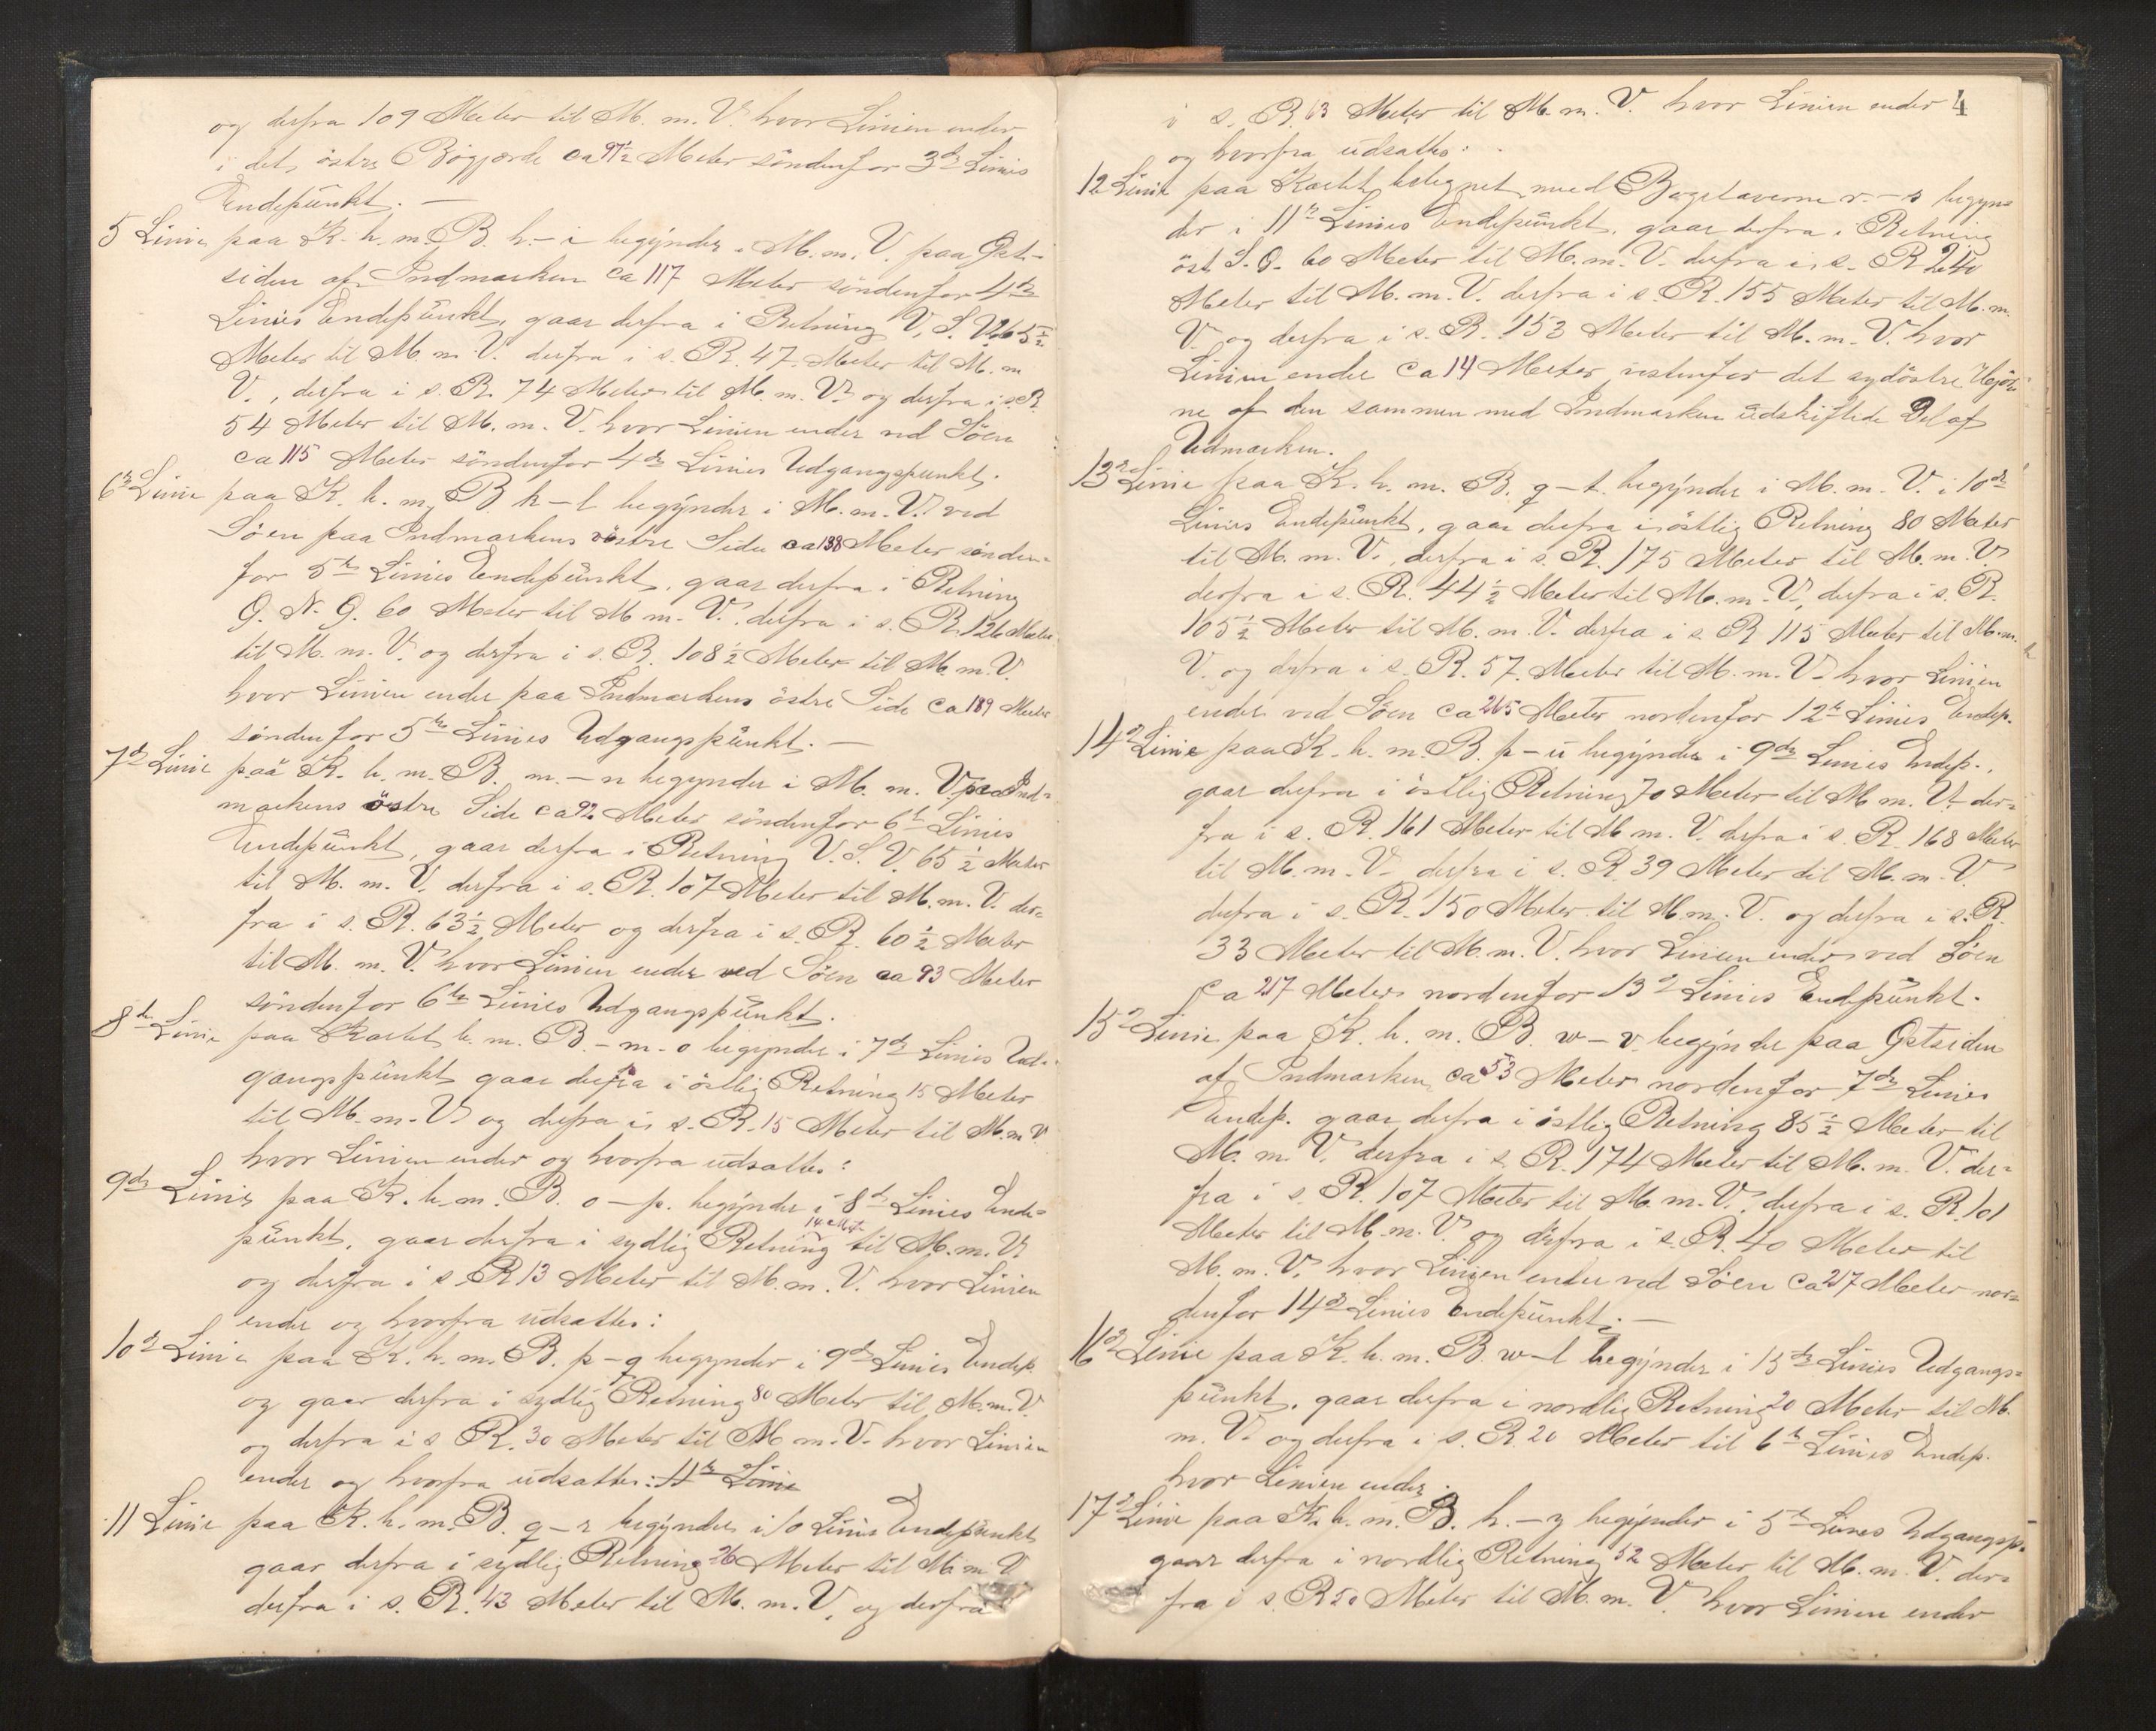 og derfra 109 Meter til M. m. V. hvor Linien ender
i det östre Bögjerde ca 97½ Meter söndenfor 3die Linies
Endepunkt. —
5 Linie paa K. h. m. B. h. – i begynder i M. m. V. paa Øst-
siden af Indmarken ca 117 Meter söndenfor 4de
Linies Endepunkt, gaar derfra i Retning V. S. V. 65½
Meter til M. m. V. derfra i s. R. 47 Meter til M. m
V., derfra i s. R. 74 Meter til M. m. V. og derfra i s. R.
54 Meter til M. m. V. hvor Linien ender ved Söen
ca 115 Meter söndenfor 4de Linies Udgangspunkt.
6te Linie paa K. h. m. B. k – l begynder i M. m. V. ved
Söen paa Indmarkens vestre Side ca 138 Meter sönden-
for 5te Linies Endepunkt, gaar derfra i Retning
O. N. O. 60 Meter til M m. V. derfra i s. R. 126 Meter
til M. m. V. og derfra i s. R. 108½ Meter til M. m. V.
hvor Linien ender paa Indmarkens östre Side ca 189 Meter
söndenfor 5te Linies Udgangspunkt. —
7de Linie paa K. h. m. B. m. – n begynder i M. m. V. paa Ind-
markens östre Side ca 92 Meter söndenfor 6te Linies
Endepunkt, gaar derfra i Retning V. S. V. 65½ Meter
til M. m. V. derfra i s. R. 107 Meter til M. m. V. der-
fra i s. R. 63½ Meter og derfra i s. R. 60½ Meter
til M. m. V. hvor Linien ender ved Söen ca 93 Meter
söndenfor 6te Linies Udgangspunkt.
8de Linie paa Kartet h. m. B. – m - o begynder i 7de Linies Ud-
gangspunkt gaar derfra i östlig Retning 15 Meter
til M. m. V. og derfra i s. R. 15 Meter til M. m V
hvor Linien ender og hvorfra udsattes:
9de Linie paa K. h. m. B. o – p. begynder i 8de Linies Ende-
punkt, gaar derfra i sydlig Retning 14 Mt. til M. m. V.
og derfra i s R 13 Meter til M. m. V. hvor Linien
ender og hvorfra udsattes:
10de Linie paa K. h. m. B. p – q begynder i 9de Linies Endep.
og gaar derfra i sydlig Retning 80 Meter til M. m. V.
og derfra i s R. 30 Meter til M m. V. hvor Linien
ender og hvorfra udsattes: 11te Linie
11 Linie paa K. h. m. B. q – r begynder i 10 Linies Endepunkt
gaar derfra i sydlig Retning 26 Meter til M. m V.
derfra i s. R. 43 Meter til M. m. V. og derfra
4
i s. R. 63 Meter til M. m. V. hvor Linien ender
og hvorfra udsattes:
12 Linie paa Kartet betegnet med Bogstaverne r. – s begyn-
der i 11te Linies Endepunkt, gaar derfra i Retning
öst S. O. 60 Meter til M. m. V. derfra i s. R 240
Meter til M. m. V. derfra i s. R. 155 Meter til M. m.
V. og derfra i s. R. 153 Meter til M. m. V. hvor
Linien ender ca 14 Meter vestenfor det sydöstre Hjör-
ne af den sammen med Indmarken udskiftede Del af
Udmarken.
13de Linie paa K. h. m. B. q – t. begynder i M. m. V. i 10de
Linies Endepunkt, gaar derfra i östlig Retning 80 Meter
til M. m. V., derfra i s. R. 175 Meter til M. m. V.
derfra i s. R. 44½ Meter til M. m. V., derfra i s. R.
105½ Meter til M. m. V. derfra i s. R 115 Meter til M. m.
V. og derfra i s. R. 57. Meter til M. m. V. hvor Linien
ender ved Söen ca 265 Meter nordenfor 12te Linies Endep.
14de Linie paa K. h. m. B. p – u begynder i 9de Linies Endep.,
gaar derfra i östlig Retning 70 Meter til M m. V. der-
fra i s. R. 161 Meter til M m. V. derfra i s. R. 168 Meter
til M. m. V. derfra i s. R. 39 Meter til M. m. V
derfra i s. R. 150 Meter til M. m. V. og derfra i s. R.
33 Meter til M. m. V. hvor Linien ender ved Söen
ca 217 Meter nordenfor 13de Linies Endepunkt.
15de Linie paa K. h. m. B. w – v. begynder paa Østsiden
af Indmarken, ca 53 Meter nordenfor 7de Linies
Endep. gaar derfra i östlig Retning 85½ Meter til
M. m. V. derfra i s R. 174 Meter til M. m. V. der-
fra i s. R. 107 Meter til M. m. V., derfra i s. R. 101
Meter til M. m. V. og derfra i s. R. 40 Meter til
M. m. V. hvor Linien ender ved Söen ca 217 Meter nor-
denfor 14de Linies Endepunkt. —
16de Linie paa K. h. m. B. w – l begynder i 15de Linies Udgangs-
punkt, gaar derfra i nordlig Retning 20 Meter til M.
m. V. og derfra i s. R. 20 Meter til 6te Linies Endep.
hvor Linien ender.
17de Linie paa K. h. m. B. h. – y begynder i 5te Linies Udgangsp.
gaar derfra i nordlig Retning 52 Meter til M. m. V. der-
fra i s. R 50 Meter til M. m. V. hvor Linien ender